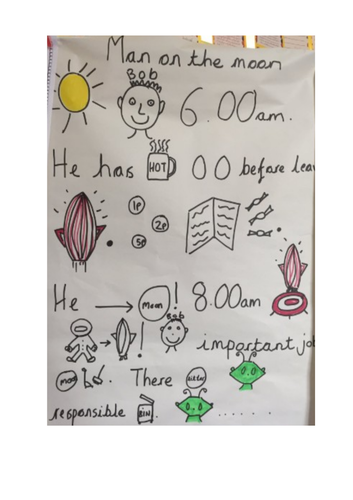 Man on the moon
Bob
6.00am.
He has HOT 00 before lea
1p
2p
5p
He Moon! 8.00am
! Bob
important jo
moon . There
responsible BIN ......